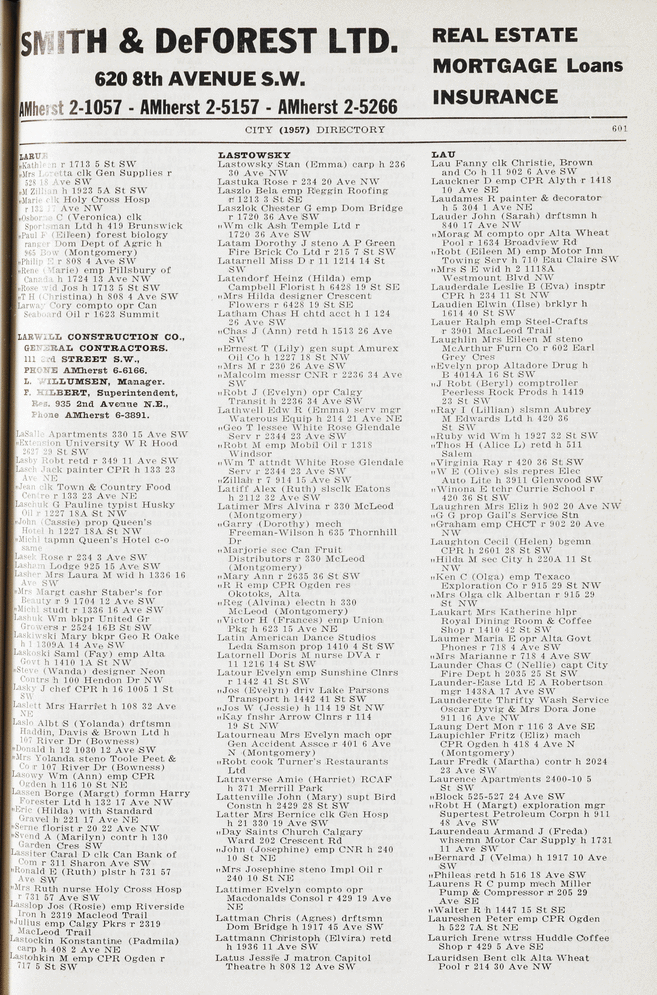 SMITH & DeFOREST LTD.
620 8th AVENUE S.W.
AMherst 2-1057 - AMherst 2-5157 - AMherst 2-5266
REAL ESTATE
MORTGAGE Loans
INSURANCE
CITY (1957) DIRECTORY
601
LARUE
"Kathleen r 1713 5 St SW
"Mrs Loretta clk Gen Supplies r
528 18 Ave SW
"M Zillah h 1923 5A St SW
"Marie clk Holy Cross Hosp
r 132 17 Ave NW
"Osborne C (Veronica) clk
Sportsman Ltd h 419 Brunswick
"Paul F (Eileen) forest biology
ranger Dom Dept of Agric h
965 Bow (Montgomery)
"Philip E r 808 4 Ave SW
"Rene (Marie) emp Pillsbury of
Canada h 1724 13 Ave NW
"Rose wid Jos h 1713 5 St SW
"T H (Christina) h 808 4 Ave SW
Larway Cory compto opr Can
Seaboard Oil r 1623 Summit
LARWILL CONSTRUCTION CO.,
GENERAL CONTRACTORS.
111 3rd STREET S.W.,
PHONE AMherst 6-6166.
L. WILLUMSEN, Manager.
P. HILBERT, Superintendent,
Res. 935 2nd Avenue N.E.,
Phone AMherst 6-3891.
LaSalle Apartments 330 15 Ave SW
"Extension University W R Hood
2627 29 St SW
Lasby Robt retd r 349 11 Ave SW
Lasch Jack painter CPR h 133 23
Ave NE
"Jean clk Town & Country Food
Centre r 133 23 Ave NE
Laschuk G Pauline typist Husky
Oil r 1227 18A St NW
"John (Cassie) prop Queen's
Hotel h 1227 18A St NW
"Michl tapmn Queen's Hotel c-o
same
Lasek Rose r 234 3 Ave SW
Lasham Lodge 925 15 Ave SW
Lasher Mrs Laura M wid h 1336 16
Ave SW
"Mrs Margt cashr Staber's for
Beauty r 9 1704 12 Ave SW
"Michl studt r 1336 16 Ave SW
Lashuk Wm bkpr United Gr
Growers r 2524 16B St SW
Laskiwski Mary bkpr Geo R Oake
h 1 1309A 14 Ave SW
Laskoski Saml (Fay) emp Alta
Govt h 1410 1A St NW
"Steve (Wanda) designer Neon
Contrs h 100 Hendon Dr NW
Lasky J chef CPR h 16 1005 1 St
SW
Laslett Mrs Harriet h 108 32 Ave
NE
Laslo Albt S (Yolanda) drftsmn
Haddin, Davis & Brown Ltd h
107 River Dr (Bowness)
"Donald h 12 1030 12 Ave SW
"Mrs Yolanda steno Toole Peet &
Co r 107 River Dr (Bowness)
Lasowy Wm (Ann) emp CPR
Ogden h 116 10 St NE
Lassen Borge (Margt) formn Harry
Forester Ltd h 132 17 Ave NW
"Eric (Hilda) with Standard
Gravel h 221 17 Ave NE
"Serne florist r 20 22 Ave NW
"Svend A (Marilyn) contr h 130
Garden Cres SW
Lassiter Caral D clk Can Bank of
Com r 311 Sharon Ave SW
"Ronald E (Ruth) plstr h 731 57
Ave SW
"Mrs Ruth nurse Holy Cross Hosp
r 731 57 Ave SW
Lasslop Jos (Rosie) emp Riverside
Iron h 2319 Macleod Trail
"Julius emp Calgy Pkrs r 2319
MacLeod Trail
Lastockin Konstantine (Padmila)
carp h 408 2 Ave NE
Lastohkin M emp CPR Ogden r
717 5 St SW
LASTOWSKY
Lastowsky Stan (Emma) carp h 236
30 Ave NW
Lastuka Rose r 234 20 Ave NW
Laszlo Bela emp Reggin Roofing
r 1213 3 St SE
Laszlok Chester G emp Dom Bridge
r 1720 36 Ave SW
"Wm clk Ash Temple Ltd r
1720 36 Ave SW
Latam Dorothy J steno A P Green
Fire Brick Co Ltd r 215 7 St SW
Latarnell Miss D r 11 1214 14 St
SW
Latendorf Heinz (Hilda) emp
Campbell Florist h 6428 19 St SE
"Mrs Hilda designer Crescent
Flowers r 6428 19 St SE
Latham Chas H chtd acct h 1 124
26 Ave SW
"Chas J (Ann) retd h 1513 26 Ave
SW
"Ernest T (Lily) gen supt Amurex
Oil Co h 1227 18 St NW
"Mrs M r 230 26 Ave SW
"Malcolm messr CNR r 2236 34 Ave
SW
"Robt J (Evelyn) opr Calgy
Transit h 2236 34 Ave SW
Lathwell Edw R (Emma) serv mgr
Waterous Equip h 214 21 Ave NE
"Geo T lessee White Rose Glendale
Serv r 2344 23 Ave SW
"Robt M emp Mobil Oil r 1318
Windsor
"Wm T attndt White Rose Glendale
Serv r 2344 23 Ave SW
"Zillah r 7 914 15 Ave SW
Latiff Alex (Ruth) slsclk Eatons
h 2112 32 Ave SW
Latimer Mrs Alvina r 330 McLeod
(Montgomery)
"Garry (Dorothy) mech
Freeman-Wilson h 635 Thornhill
Dr
"Marjorie sec Can Fruit
Distributors r 330 McLeod
(Montgomery)
"Mary Ann r 2635 36 St SW
"R R emp CPR Ogden res
Okotoks, Alta
"Reg (Alvina) electn h 330
McLeod (Montgomery)
"Victor H (Frances) emp Union
Pkg h 623 15 Ave NE
Latin American Dance Studios
Leda Samson prop 1410 4 St SW
Latornell Doris M nurse DVA r
11 1216 14 St SW
Latour Evelyn emp Sunshine Clnrs
r 1442 41 St SW
"Jos (Evelyn) driv Lake Parsons
Transport h 1442 41 St SW
"Jos W (Jessie) h 114 19 St NW
"Kay fnshr Arrow Clnrs r 114
19 St NW
Latourneau Mrs Evelyn mach opr
Gen Accident Assce r 401 6 Ave
N (Montgomery)
"Robt cook Turner's Restaurants
Ltd
Latraverse Amie (Harriet) RCAF
h 371 Merrill Park
Lattenville John (Mary) supt Bird
Constn h 2429 28 St SW
Latter Mrs Bernice clk Gen Hosp
h 21 330 19 Ave SW
"Day Saints Church Calgary
Ward 202 Crescent Rd
"John (Josephine) emp CNR h 240
10 St NE
"Mrs Josephine steno Impl Oil r
240 10 St NE
Lattimer Evelyn compto opr
Macdonalds Consol r 429 19 Ave
NE
Lattman Chris (Agnes) drftsmn
Dom Bridge h 1917 45 Ave SW
Lattmann Christoph (Elvira) retd
h 1936 11 Ave SW
Latus Jessie J matron Capitol
Theatre h 808 12 Ave SW
LAU
Lau Fanny clk Christie, Brown
and Co h 11 902 6 Ave SW
Lauckner D emp CPR Alyth r 1418
10 Ave SE
Laudames R painter & decorator
h 5 304 1 Ave NE
Lauder John (Sarah) drftsmn h
840 17 Ave NW
"Morag M compto opr Alta Wheat
Pool r 1634 Broadview Rd
"Robt (Eileen M) emp Motor Inn
Towing Serv h 710 Eau Claire SW
"Mrs S E wid h 2 1118A
Westmount Blvd NW
Lauderdale Leslie B (Eva) insptr
CPR h 234 11 St NW
Laudien Elwin (Ilse) brklyr h
1614 40 St SW
Lauer Ralph emp Steel-Crafts
r 3901 MacLeod Trail
Laughlin Mrs Eileen M steno
McArthur Furn Co r 602 Earl
Grey Cres
"Evelyn prop Altadore Drug h
B 4014A 16 St SW
"J Robt (Beryl) comptroller
Peerless Rock Prods h 1419
23 St SW
"Ray I (Lillian) slsmn Aubrey
M Edwards Ltd h 420 36
St SW
"Ruby wid Wm h 1927 32 St SW
"Thos H (Alice L) retd h 511
Salem
"Virginia Ray r 420 36 St SW
"W E (Olive) sls repres Elec
Auto Lite h 3911 Glenwood SW
"Winona E tchr Currie School r
420 36 St SW
Laughren Mrs Eliz h 902 20 Ave NW
"G G prop Gail's Service Stn
"Graham emp CHCT r 902 20 Ave
NW
Laughton Cecil (Helen) bgemn
CPR h 2601 28 St SW
"Hilda M sec City h 220A 11 St
NW
"Ken C (Olga) emp Texaco
Exploration Co r 915 29 St NW
"Mrs Olga clk Albertan r 915 29
St NW
Laukart Mrs Katherine hlpr
Royal Dining Room & Coffee
Shop r 1410 42 St SW
Laumer Maria E opr Alta Govt
Phones r 718 4 Ave SW
"Mrs Marianne r 718 4 Ave SW
Launder Chas C (Nellie) capt City
Fire Dept h 2035 25 St SW
Launder-Ease Ltd E A Robertson
mgr 1438A 17 Ave SW
Launderette Thrifty Wash Service
Oscar Dyvig & Mrs Dora Jone
911 16 Ave NW
Laung Dert Mon r 116 3 Ave SE
Laupichler Fritz (Eliz) mach
CPR Ogden h 418 4 Ave N
(Montgomery)
Laur Fredk (Martha) contr h 2024
23 Ave SW
Laurence Apartments 2400-10 5
St SW
"Block 525-527 24 Ave SW
"Robt H (Margt) exploration mgr
Supertest Petroleum Corpn h 911
48 Ave SW
Laurendeau Armand J (Freda)
whsemn Motor Car Supply h 1731
11 Ave SW
"Bernard J (Velma) h 1917 10 Ave
SW
"Phileas retd h 516 18 Ave SW
Laurens R C pump mech Miller
Pump & Compressor r 205 29
Ave SE
"Walter R h 1447 15 St SE
Laureshen Peter emp CPR Ogden
h 522 7A St NE
Laurich Irene wtrss Huddle Coffee
Shop r 429 5 Ave SE
Lauridsen Bent clk Alta Wheat
Pool r 214 30 Ave NW